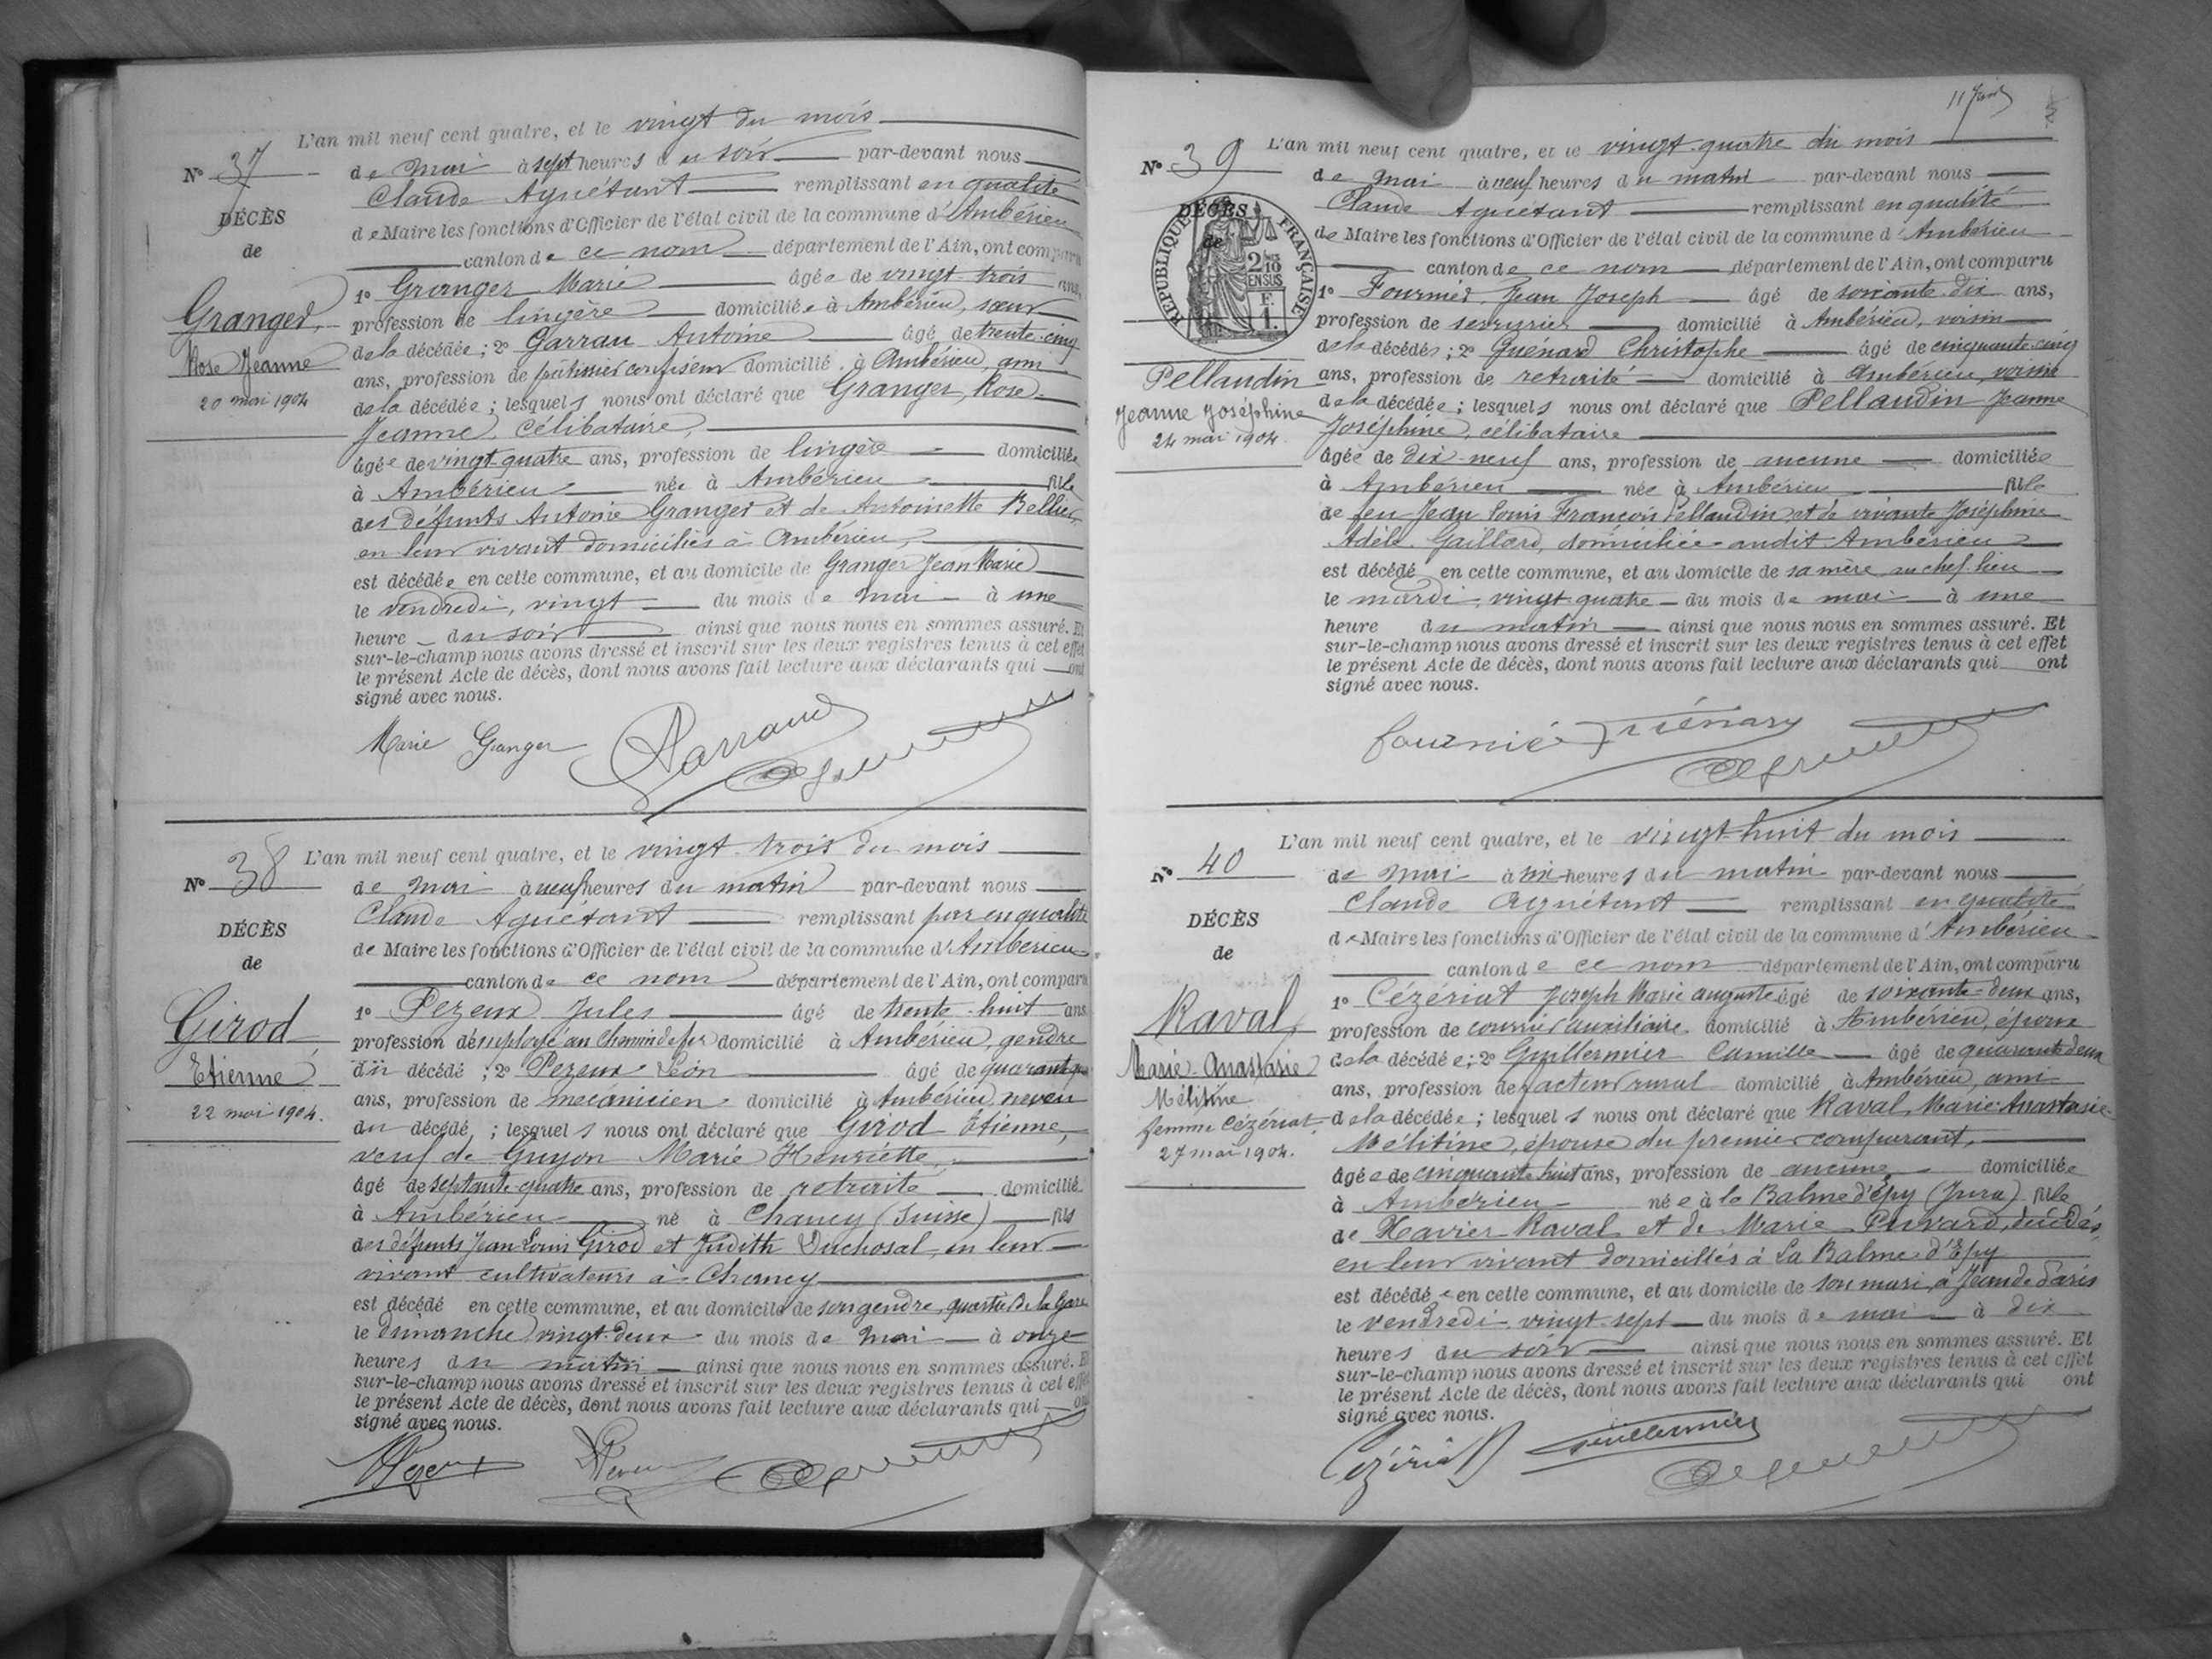 L'an mil neuf cent quatre, et le vingt du mois
N° 37
de mai à sept heures du soir par-devant nous
Claude Aguétant remplissant en qualité
DÉCÈS
de Maire les fonctions d'Officier de l'état civil de la commune d'Ambérieu
de
canton de ce nom département de l'Ain, ont comparu
1° Granger Marie âgée de vingt-trois ans,
Granger,
profession de lingère domiciliée à Ambérieu, sœur
de la décédée ; 2° Garrau Antoine âgé de trente-cinq
Rose Jeanne
ans, profession de pâtissier confiseur domicilié à Ambérieu, ami
20 mai 1904
de la décédée ; lesquels nous ont déclaré que Granger, Rose
Jeanne, célibataire,
âgée de vingt-quatre ans, profession de lingère domiciliée
à Ambérieu née à Ambérieu fille
des défunts Antoine Granger et de Antoinette Bellier,
en leur vivant domiciliés à Ambérieu,
est décédée en cette commune, et au domicile de Granger Jean Marie
le vendredi, vingt du mois de mai à une
heure du soir ainsi que nous nous en sommes assuré. Et
sur-le-champ nous avons dressé et inscrit sur les deux registres tenus à cet effet
le présent Acte de décès, dont nous avons fait lecture aux déclarants qui ont
signé avec nous.
Marie Granger Garraud
L'an mil neuf cent quatre, et le vingt-trois du mois
N° 38
de mai à neuf heures du matin par-devant nous
Claude Aguétant remplissant par en qualité
DÉCÈS
de Maire les fonctions d'Officier de l'état civil de la commune d'Ambérieu
de
canton de ce nom département de l'Ain, ont comparu
1° Pezeux Jules âgé de trente-huit ans
Girod
profession d'employé au chemin de fer domicilié à Ambérieu, gendre
du décédé ; 2° Pezeux Léon âgé de
Etienne
ans, profession de mécanicien domicilié à Ambérieu neveu
22 mai 1904.
du décédé ; lesquels nous ont déclaré que Girod Etienne,
veuf de Guyon Marie Henriette,
âgé de septante-quatre ans, profession de retraité domicilié
à Ambérieu né à Chancy (Suisse) fils
des défunts Jean Louis Girod et Judith Duchosal, en leur
vivant cultivateurs à Chancy
est décédé en cette commune, et au domicile de son gendre, quartier de la Gare
le dimanche vingt-deux du mois de mai à onze
heures du matin ainsi que nous nous en sommes assuré. Et
sur-le-champ nous avons dressé et inscrit sur les deux registres tenus à cet effet
le présent Acte de décès, dont nous avons fait lecture aux déclarants qui ont
signé avec nous.
Pezeux
L'an mil neuf cent quatre, et le vingt-quatre du mois
N° 39
de mai à neuf heures du matin par-devant nous
Claude Aguétant remplissant en qualité
DÉCÈS
de Maire les fonctions d'Officier de l'état civil de la commune d'Ambérieu
de
RÉPUBLIQUE FRANÇAISE
2/10 EN SUS
1 F.
canton de ce nom département de l'Ain, ont comparu
1° Fournier Jean Joseph âgé de soixante-dix ans,
profession de serrurier domicilié à Ambérieu, voisin
de la décédée ; 2° Guénard Christophe âgé de cinquante-cinq
Pellaudin
ans, profession de retraité domicilié à Ambérieu, voisin
Jeanne Joséphine
de la décédée ; lesquels nous ont déclaré que Pellaudin Jeanne
24 mai 1904.
Joséphine, célibataire
âgée de dix-neuf ans, profession de aucune domiciliée
à Ambérieu née à Ambérieu fille
de feu Jean Louis François Pellaudin et de vivante Joséphine
Adèle Gaillard, domiciliée audit Ambérieu
est décédé en cette commune, et au domicile de sa mère, au chef-lieu
le mardi, vingt-quatre du mois de mai à une
heure du matin ainsi que nous nous en sommes assuré. Et
sur-le-champ nous avons dressé et inscrit sur les deux registres tenus à cet effet
le présent Acte de décès, dont nous avons fait lecture aux déclarants qui ont
signé avec nous.
fournié Guénard
L'an mil neuf cent quatre, et le vingt-huit du mois
N° 40
de mai à heures du matin par-devant nous
Claude Aguétant remplissant en qualité
DÉCÈS
de Maire les fonctions d'Officier de l'état civil de la commune d'Ambérieu
de
canton de ce nom département de l'Ain, ont comparu
1° Cézériat Joseph Marie Auguste âgé de soixante-deux ans,
Raval,
profession de courrier auxiliaire domicilié à Ambérieu, époux
Marie-Anastasie
de la décédée ; 2° Guillermier Camille âgé de quarante-deux
Mélitine
ans, profession de facteur rural domicilié à Ambérieu, ami
femme Cézériat
de la décédée ; lesquels nous ont déclaré que Raval, Marie-Anastasie
27 mai 1904.
Mélitine, épouse du premier comparant,
âgée de cinquante-huit ans, profession de aucune domiciliée
à Ambérieu née à la Balme d'Epy (Jura) fille
de Xavier Raval et de Marie décédés,
en leur vivant domiciliés à La Balme-d'Epy
est décédée en cette commune, et au domicile de son mari, à Jean de Paris
le vendredi vingt-sept du mois de mai à dix
heures du soir ainsi que nous nous en sommes assuré. Et
sur-le-champ nous avons dressé et inscrit sur les deux registres tenus à cet effet
le présent Acte de décès, dont nous avons fait lecture aux déclarants qui ont
signé avec nous.
Cézériat Guillermier